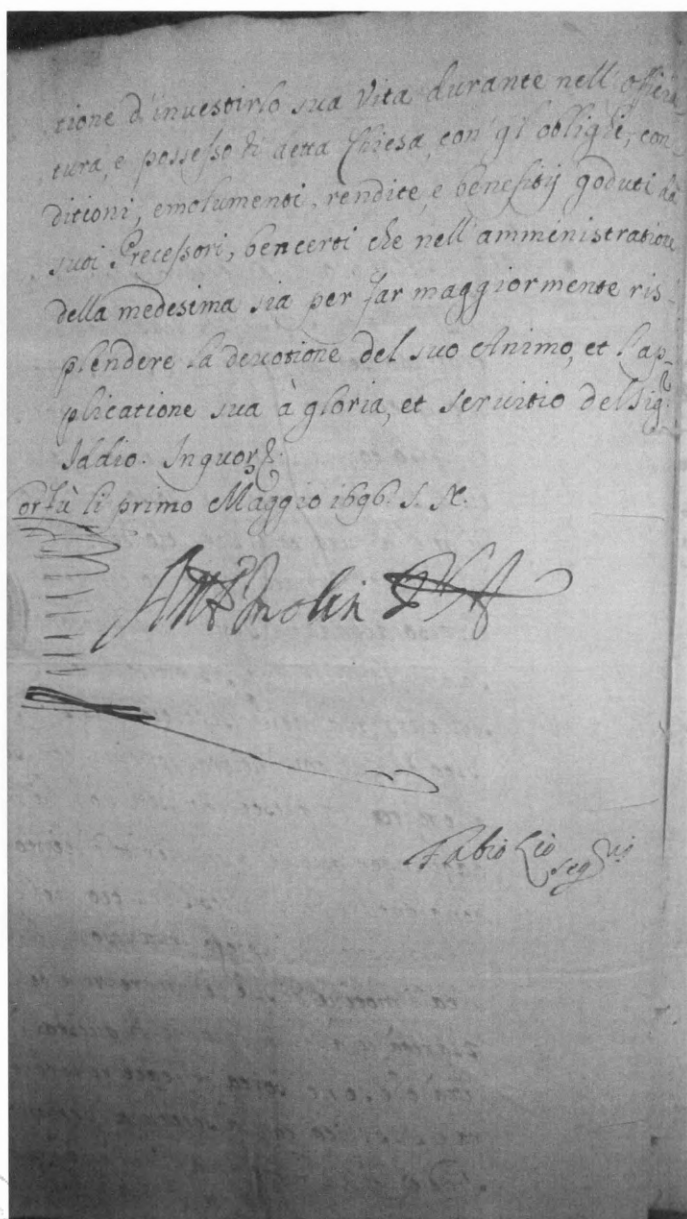 tione d'inuestirlo sua Vita durante nell'officia
tura, e possesso di detta Chiesa, con gl'oblighi, con
ditioni, emolumenti, rendite, e benefitij goduti da
suoi Precessori, bencerti che nell'amministratione
della medesima sia per far maggiormente ris-
plendere la deuotione del suo Animo, et l'ap-
plicatione sua à gloria, et seruitio del Sig:r
Iddio. In quor
Corfù li primo Maggio 1696. S. N.
Molin
Fabio Lio
seg